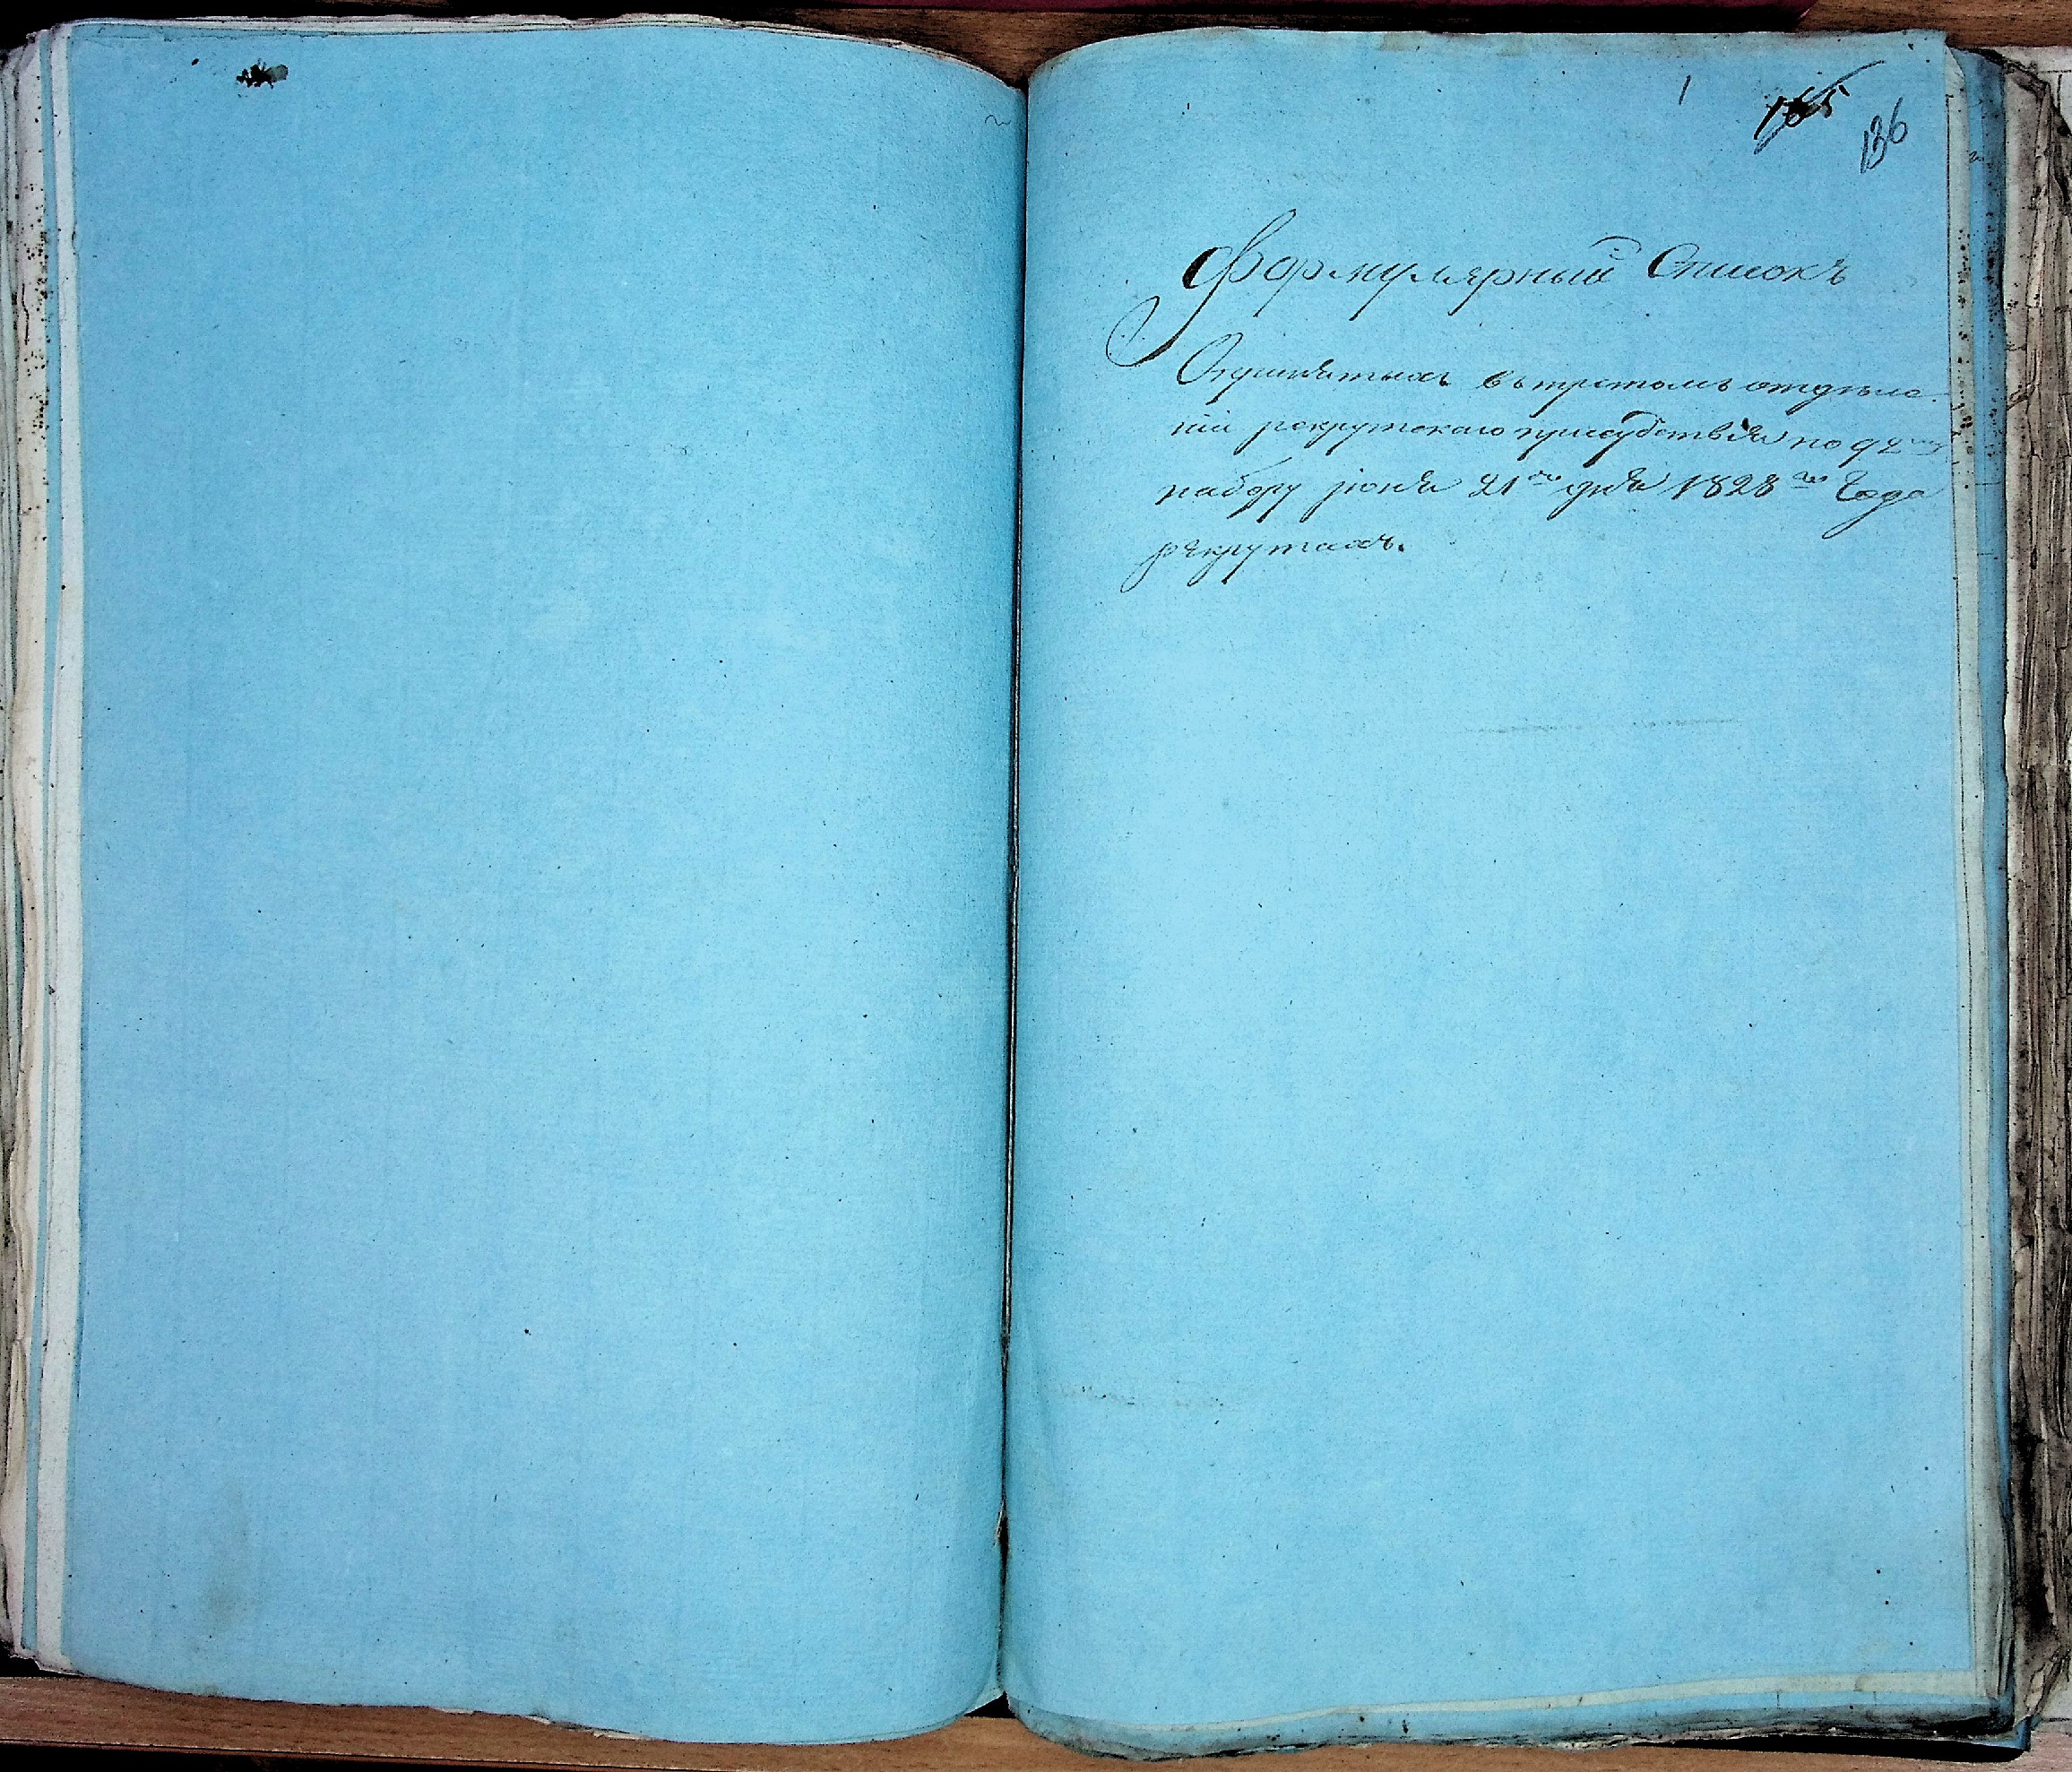 1
165
136
Формулярный Списокъ
Опринятыхъ въ третомъ отделе
нiи рекрутскаго присудствiя по 92му
набору iюня 21го дня 1828го Года
рекрутахъ.